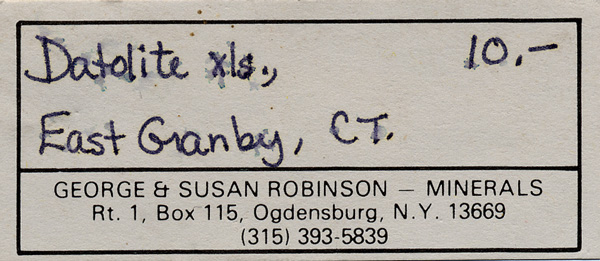 Datolite xls., 10.—
East Granby, CT.
GEORGE & SUSAN ROBINSON — MINERALS
Rt. 1, Box 115, Ogdensburg, N.Y. 13669
(315) 393-5839